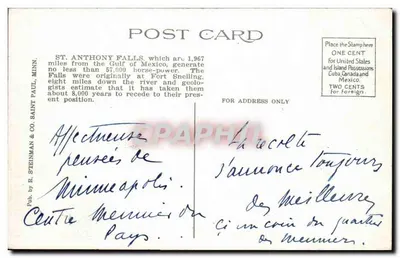 POST CARD
ST. ANTHONY FALLS, which are 1,967
miles from the Gulf of Mexico, generate
no less than 57,000 horse-power. The
Falls were originally at Fort Snelling,
eight miles down the river and geolo-
gists estimate that it has taken them
about 8,000 years to recede to their pres-
ent position.
Place the Stamp here
ONE CENT
for United States
and Island Possessions
Cuba, Canada and
Mexico
TWO CENTS
for Foreign.
FOR ADDRESS ONLY
Pub. by R. STEINMAN & CO. SAINT PAUL, MINN.
Affectueuses
pensées de
Minneapolis.
Centre Meunier du
Pays.
La récolte
s'annonce toujours
des meilleures
ci un coin du quartier
des meuniers.